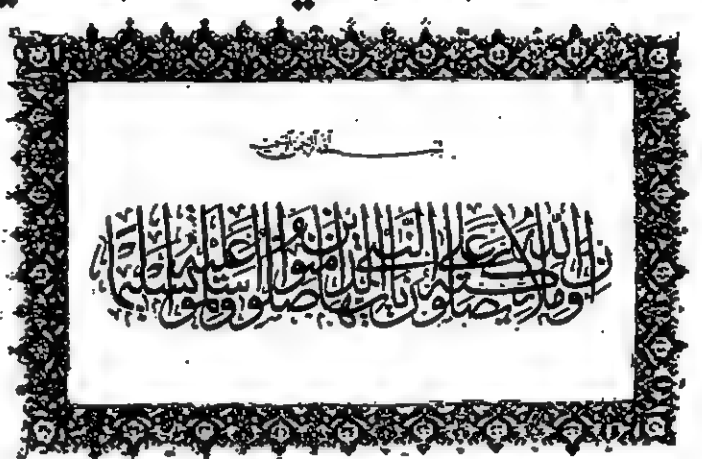 بسم الله الرحمن الرحيم
إن الله وملائكته يصلون على النبي يا أيها الذين آمنوا صلوا عليه وسلموا تسليما